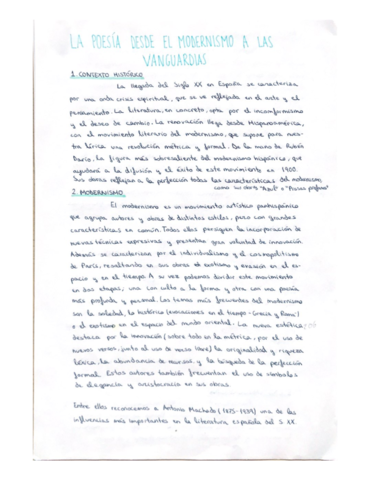 LA POESÍA DESDE EL MODERNISMO A LAS
VANGUARDIAS
1. CONTEXTO HISTÓRICO
La llegada del Siglo XX en España se caracteriza
por una onda crisis espiritual, que se ve reflejada en el arte y el
pensamiento. La literatura, en concreto, opta por el inconformismo
y el deseo de cambio. La renovación llega desde Hispanoamérica,
con el movimiento literario del modernismo, que supone para nues-
tra lírica una revolución métrica y formal. De la mano de Rubén
Darío, la figura más sobresaliente del modernismo hispánico, que
ayudará a la difusión y el éxito de este movimiento en 1900.
Sus obras reflejan a la perfección todas las características del modernismo,
como "Azul" o "Prosas profanas"
2. MODERNISMO
El modernismo es un movimiento artístico panhispánico
que agrupa autores y obras de distintos estilos, pero con grandes
características en común. Todos ellos persiguen la incorporación de
nuevas técnicas expresivas y presentan gran voluntad de innovación.
Además se caracteriza por el individualismo y el cosmopolitismo
de París, resaltando en sus obras el exotismo y evasión en el es-
pacio y en el tiempo. A su vez podemos dividir este movimiento
en dos etapas, una con culto a la forma y otra con una poesía
más profunda y personal. Los temas más frecuentes del modernismo
son la soledad, la histórica (evocaciones en el tiempo - Grecia y Roma)
o el exotismo en el espacio del mundo oriental. La nueva estética
destaca por la innovación sobre todo en la métrica, por el uso de
nuevos versos, junto al uso de verso libre, la originalidad y riqueza
léxica, la abundancia de recursos y la búsqueda de la perfección
formal. Estos autores también frecuentan el uso de símbolos
de elegancia y aristocracia en sus obras.
Entre ellos reconocemos a Antonio Machado (1875-1939) una de las
influencias más importantes en la literatura española del S. XX.